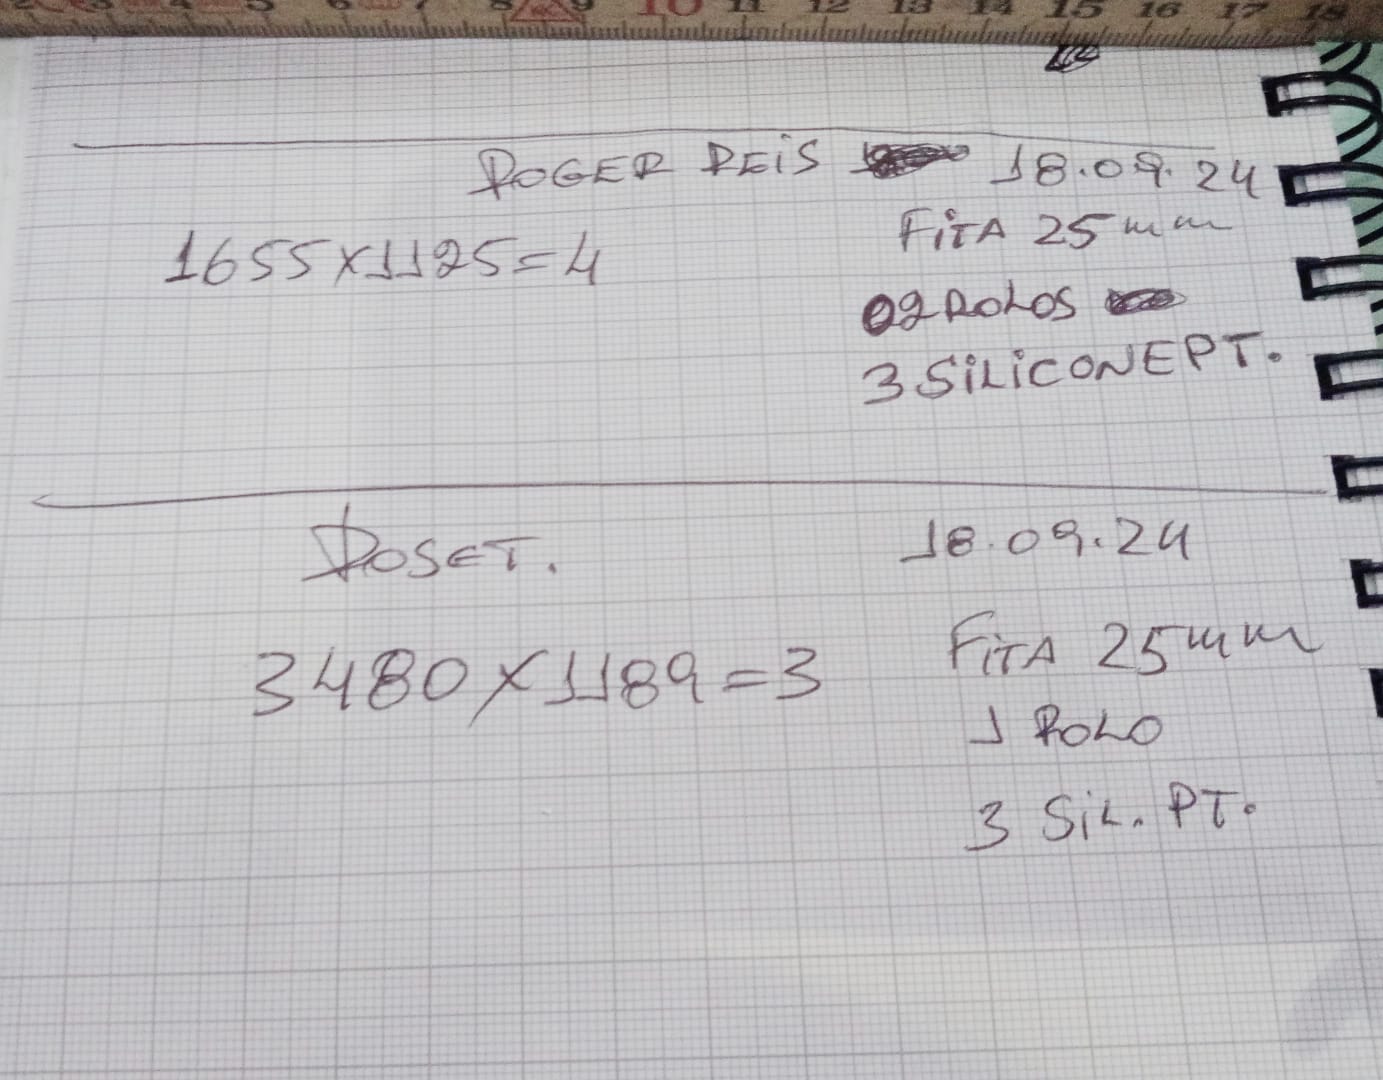 2 3 4 5 6 7 8 9 10 11 12 13 14 15 16 17 18
ROGER REiS 18.09.24
1655x1125=4
FiTA 25mm
02 ROLOS
3 SiLiCONE PT.
ROSET.
18.09.24
3480x1189=3
FiTA 25mm
1 ROLO
3 SiL. PT.